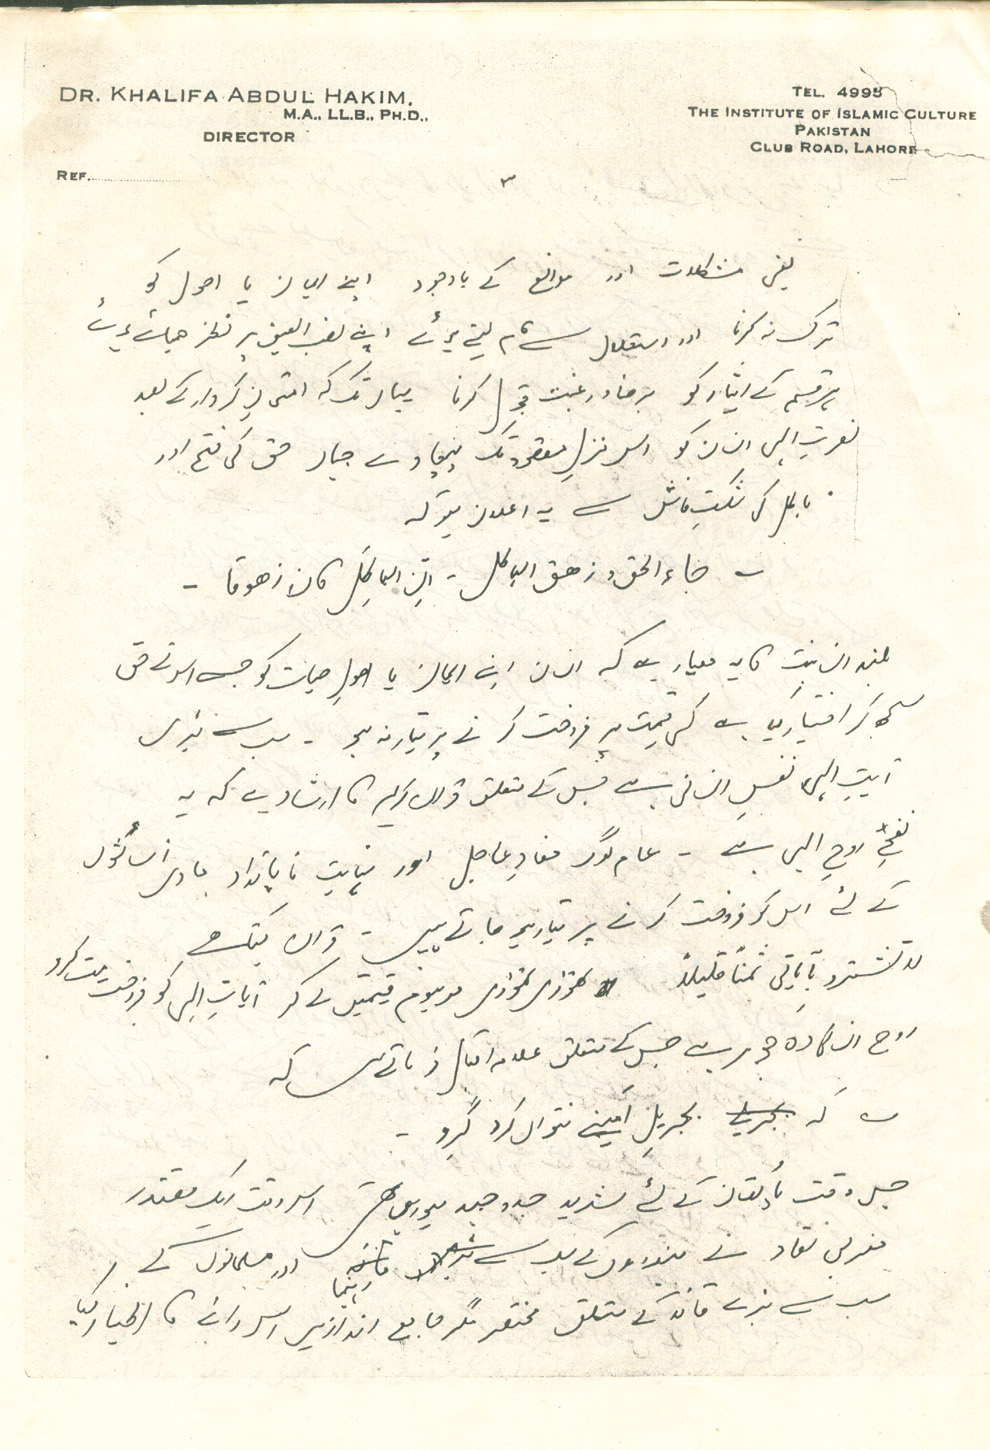 DR. KHALIFA ABDUL HAKIM.
M.A., LL.B., PH.D.,
DIRECTOR
REF.
TEL. 4995
THE INSTITUTE OF ISLAMIC CULTURE
PAKISTAN
CLUB ROAD, LAHORE
۳
یعنی مشکلات اور موانع کے باوجود اپنے ایمان یا اصول کو
ترک نہ کرنا اور استقلال سے کام لیتے ہوئے اپنے نصب العین پر نظر جمائے ہوئے
ہر قسم کے ایثار کو برضا و رغبت قبول کرنا یہاں تک کہ امتحانِ کردار کے بعد
نصرتِ الہی انسان کو اس منزلِ مقصود تک پہنچا دے جہاں حق کی فتح اور
باطل کی شکستِ فاش سے یہ اعلان ہو کہ
جاء الحق و زھق الباطل ۔ انّ الباطل کان زھوقا ۔
بلند انسانیت کا یہ معیار ہے کہ انسان اپنے ایمان یا اصولِ حیات کو جسے اس نے حق
سمجھ کر اختیار کیا ہے کسی قیمت پر فروخت کرنے پر تیار نہ ہو ۔ سب سے بڑی
آیتِ الہی نفسِ انسانی ہے جس کے متعلق قرآن کریم کا ارشاد ہے کہ یہ
نفخۂ روحِ الہی ہے ۔ عام لوگ مفادِ عاجل اور نہایت ناپائدار مادی
کے لئے اس کو فروخت کرنے پر تیار ہو جاتے ہیں ۔ قرآن کہتا ہے
لا تشترو بآیاتی ثمناً قلیلاً تھوڑی تھوڑی موہوم قیمتیں لے کر آیاتِ الہی کو فروخت مت کرو
روح انسانی وہ جوہر ہے جس کے متعلق علامہ اقبال فرماتے ہیں کہ
کہ بجبریلِ امینے نتواں کرد گرو ۔
جس وقت پاکستان کے لئے شدید جدوجہد ہو رہی تھی اس وقت ایک مقتدر
مغربی نقاد نے ہندوؤں کے سب سے بڑے رہنما اور مسلمانوں کے
سب سے بڑے قائد کے متعلق مختصر مگر جامع انداز میں اس رائے کا اظہار کیا